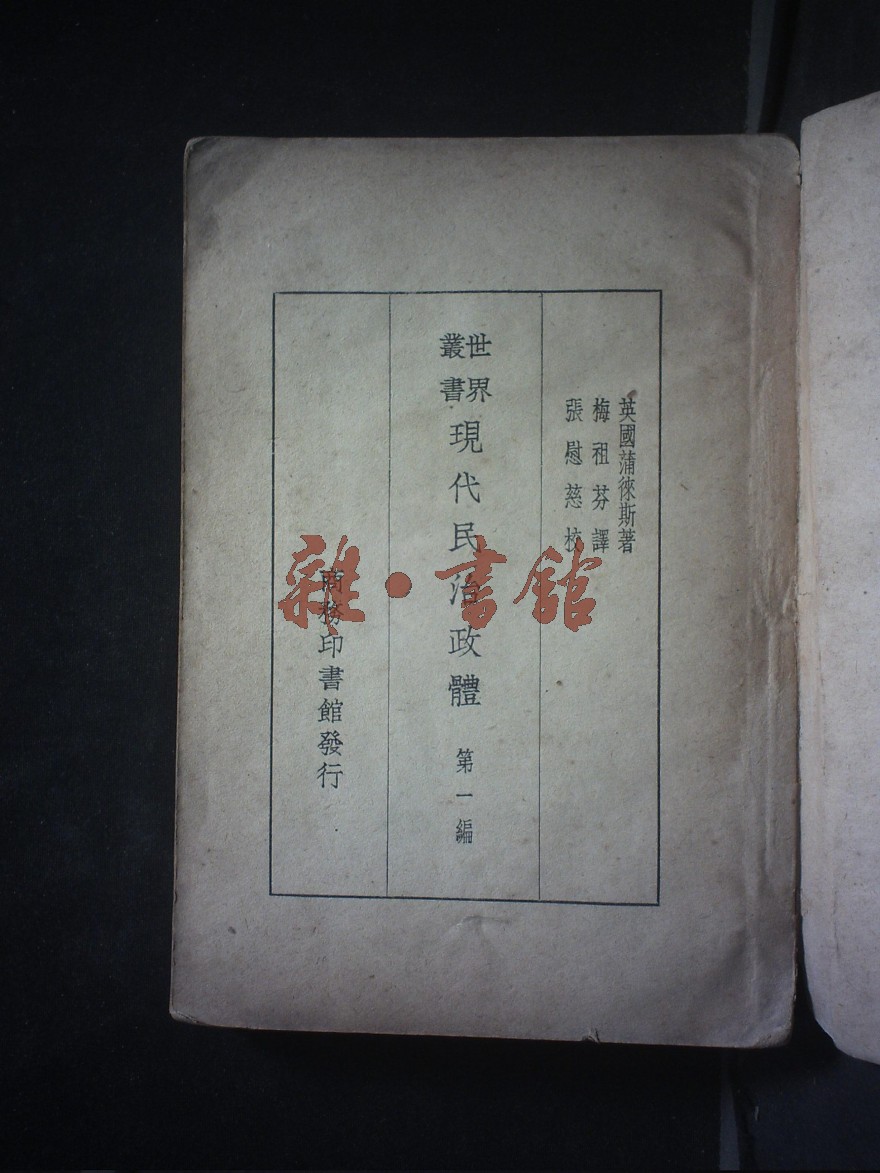 英國蒲徠斯著
梅祖芬譯
張慰慈校
世界
叢書
現代民治政體
第一編
商務印書館發行
雜·書館